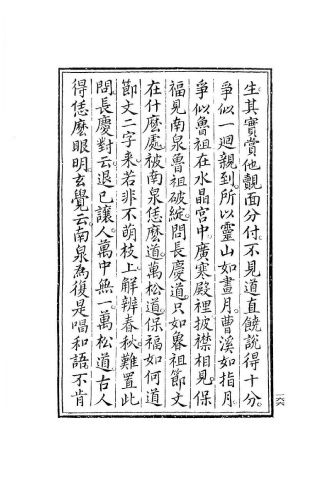 生。其實賞他覿面分付。不見道。直饒說得十分。
爭似一迴親到。所以靈山如畫月。曹溪如指月。
爭似魯祖在水晶宮中。廣寒殿裡披襟相見。保
福見南泉魯祖破綻。問長慶道。只如魯祖節文
在什麼處。被南泉恁麼道。萬松道。保福如何道
節文二字來。若非不萌枝上。解辨春秋。難置此
問。長慶對云。退己讓人。萬中無一。萬松道。古人
得恁麼眼明。玄覺云。南泉為復是唱和語。不肯
一六六